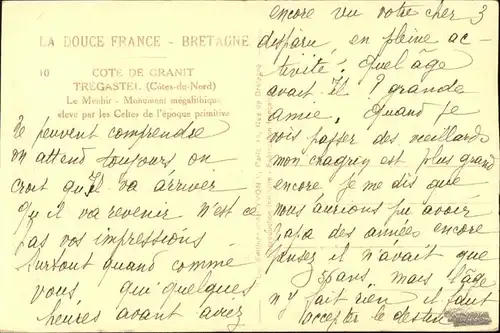 LA DOUCE FRANCE - BRETAGNE
10 COTE DE GRANIT
TREGASTEL (Côtes-du-Nord)
Le Menhir - Monument mégalithique
élevé par les Celtes de l'époque primitive
ne peuvent comprendre
on attend toujours on
croit qu'il va arriver
qu'il va revenir n'est ce
pas vos impressions.
Surtout quand comme
vous, qui quelques
heures avant aviez
encore vu votre cher 3
disparu, en pleine ac-
tivité. Quel âge
avait-il ? grande
amie. Quand je
vois passer des vieillards
mon chagrin est plus grand
encore, je me dis que
nous aurions pu avoir
papa des années encore
pensez il n'avait que
ans, mais l'âge
n'y fait rien il faut
accepter le destin